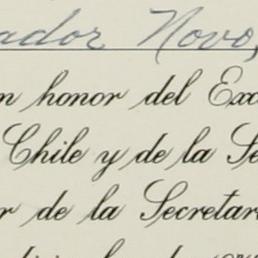 ador Novo,
n honor del Exc
Chile y de la Se
r de la Secretar